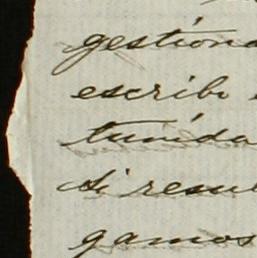 gestiona
escribi
tunida
di resul
gamos